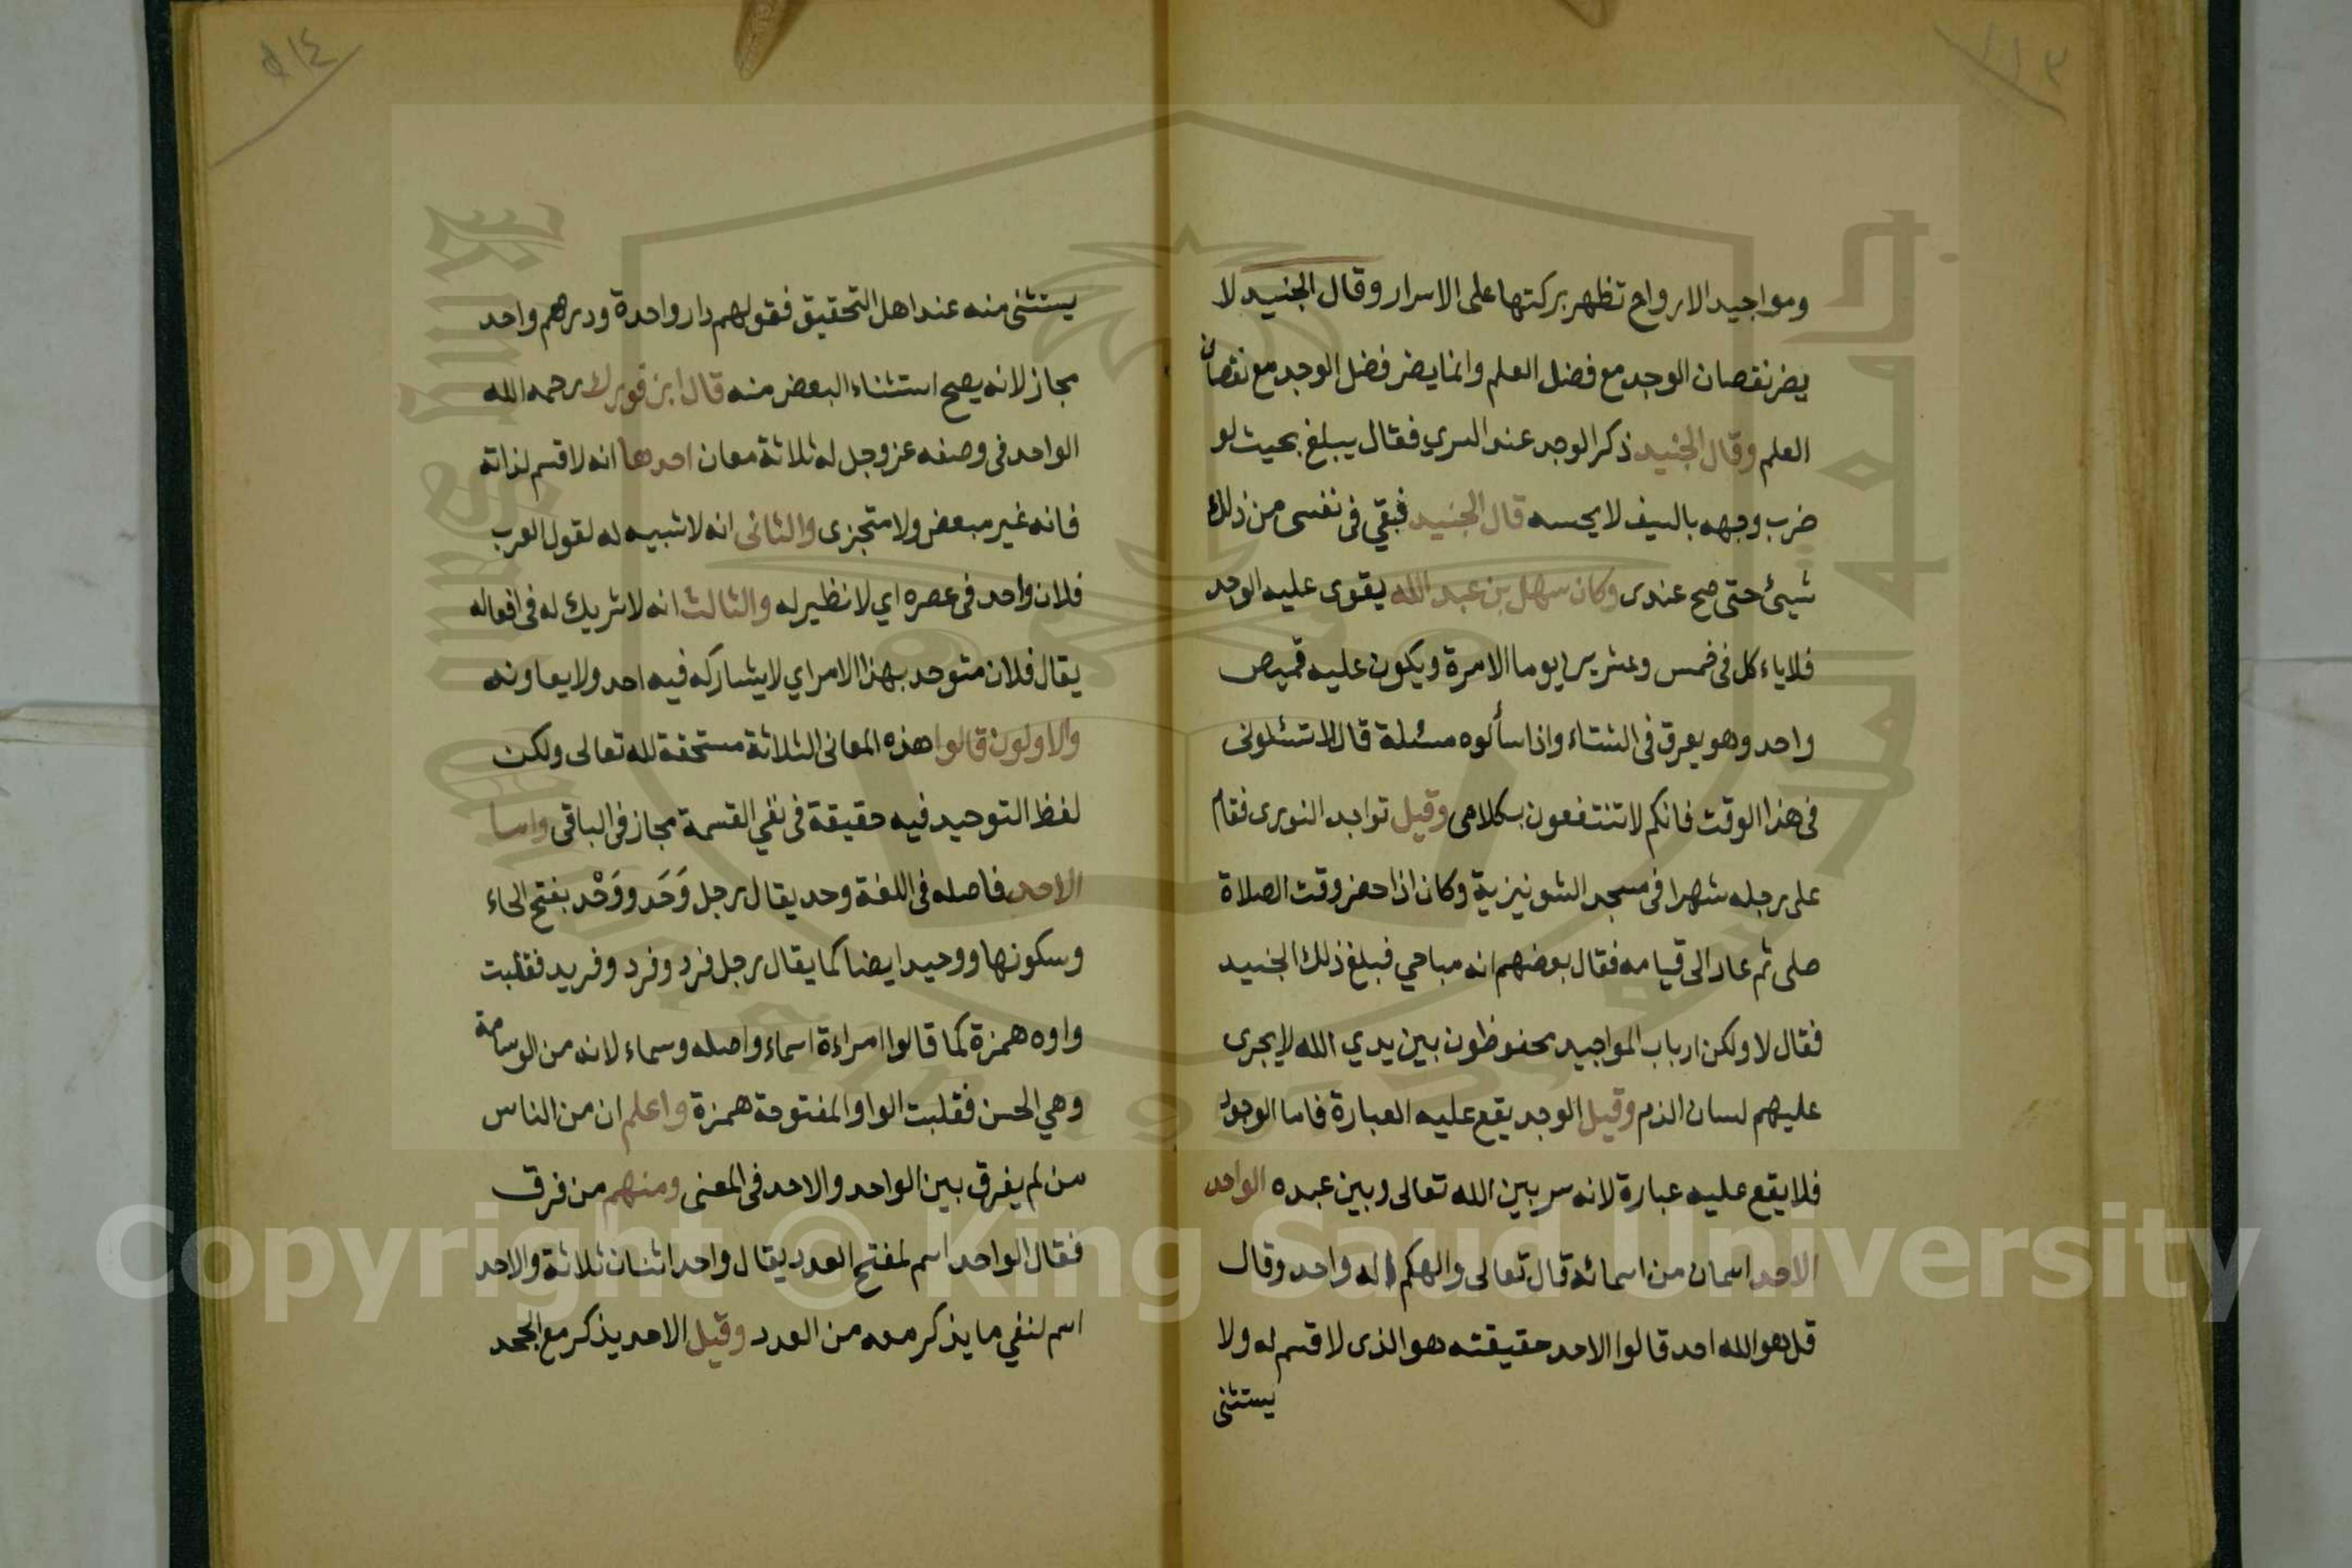 ومواجيد الارواح تظهر بركتها على الاسرار وقال الجنيد لا
يضر نقصان الوجد مع فضل العلم وانما يضر فضل الوجد مع نقصان
العلم وقال الجنيد ذكر الوجد عند السري فقال يبلغ بحيث لو
ضرب وجهه بالسيف لا يحسه قال الجنيد فبقي فى نفسى من ذلك
شيئ حتى صح عندى وكان سهل بن عبد الله يقوى عليه الوجد
فلا ياءكل فى خمس وعشرين يوما الا مرة ويكون عليه قميص
واحد وهو يعرق فى الشتاء واذا سألوه مسئلة قال لا تسئلونى
فى هذا الوقت فانكم لا تنتفعون بكلامى وقيل تواجد النورى فقام
على رجله شهرا فى مسجد الشونيزية وكان اذا حضر وقت الصلاة
صلى ثم عاد الى قيامه فقال بعضهم انه مباحي فبلغ ذلك الجنيد
فقال لا ولكن ارباب المواجيد محفوظون بين يدي الله لا يجرى
عليهم لسان الذم وقيل الوجد يقع عليه العبارة فاما الوجود
فلا يقع عليه عبارة لانه سر بين الله تعالى وبين عبده الواحد
الاحد اسمان من اسمائه قال تعالى والهكم اله واحد وقال
قل هو الله احد قالوا الاحد حقيقته هو الذى لا قسم له ولا
يستثنى
يستثنى منه عند اهل التحقيق فقولهم دار واحدة ودرهم واحد
مجاز لانه يصح استثناء البعض منه قال ابن فورك رحمه الله
الواحد فى وصفه عز وجل له ثلاثة معان احدها انه لا قسم لذاته
فانه غير مبعض ولا متجزى والثانى انه لا شبيه له لقول العرب
فلان واحد فى عصره اي لا نظير له والثالث انه لا شريك له فى افعاله
يقال فلان متوحد بهذا الامر اي لا يشاركه فيه احد ولا يعاونه
والاولون قالوا هذه المعانى الثلاثة مستحقة لله تعالى ولكن
لفظ التوحيد فيه حقيقة فى نفي القسمة مجاز فى الباقى واما
الاحد فاصله فى اللغة وحد يقال رجل وَحَد ووَحْد بفتح الحاء
وسكونها ووحيد ايضا كما يقال رجل فرد وفرد وفريد فقلبت
واوه همزة كما قالوا امراءة اسماء واصله وسماء لانه من الوسامة
وهي الحسن فقلبت الواو المفتوحة همزة واعلم ان من الناس
من لم يفرق بين الواحد والاحد فى المعنى ومنهم من فرق
فقال الواحد اسم لمفتح العدد يقال واحد اثنان ثلاثة والاحد
اسم لنفي ما يذكر معه من العدد وقيل الاحد يذكر مع الجحد
Copyright © King Saud University